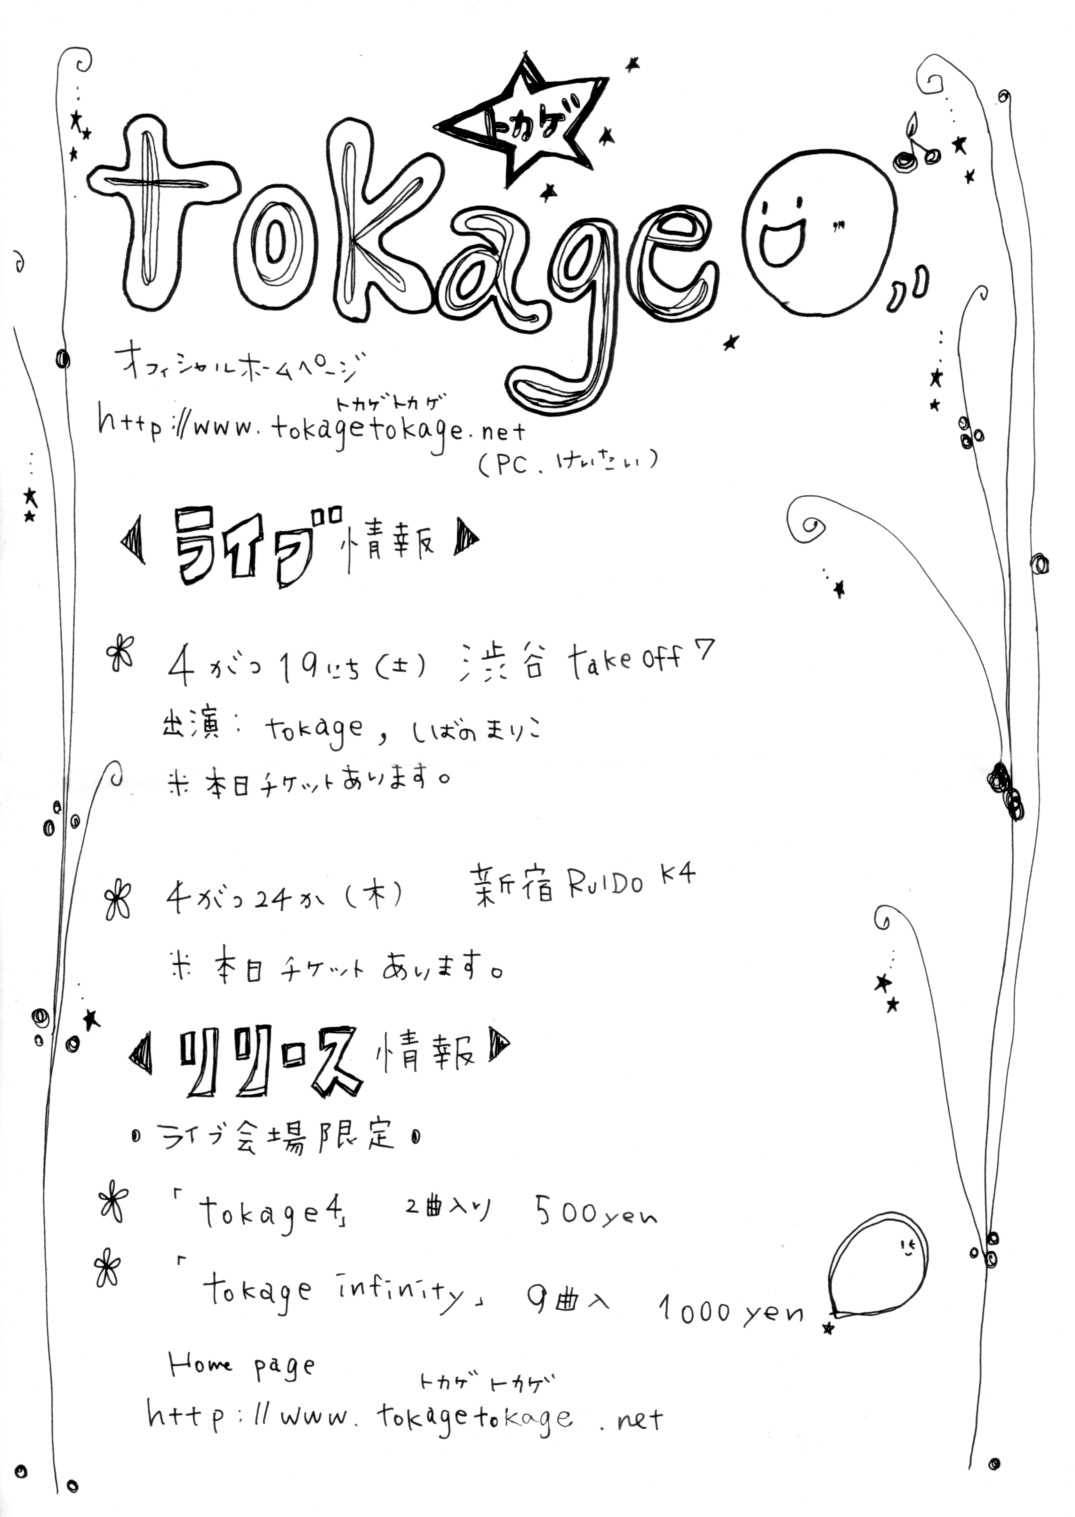 トカゲ
tokage
オフィシャルホームページ
トカゲトカゲ
http://www.tokagetokage.net
(PC.けいたい)
ライブ情報
4がつ19にち(土) 渋谷 take off 7
出演: tokage, しばのまりこ
※本日チケットあります。
4がつ24か(木) 新宿 RUIDO K4
※本日チケットあります。
リリース情報
・ライブ会場限定・
「tokage4」 2曲入り 500yen
「tokage infinity」 9曲入 1000yen
Home page
トカゲトカゲ
http://www.tokagetokage.net